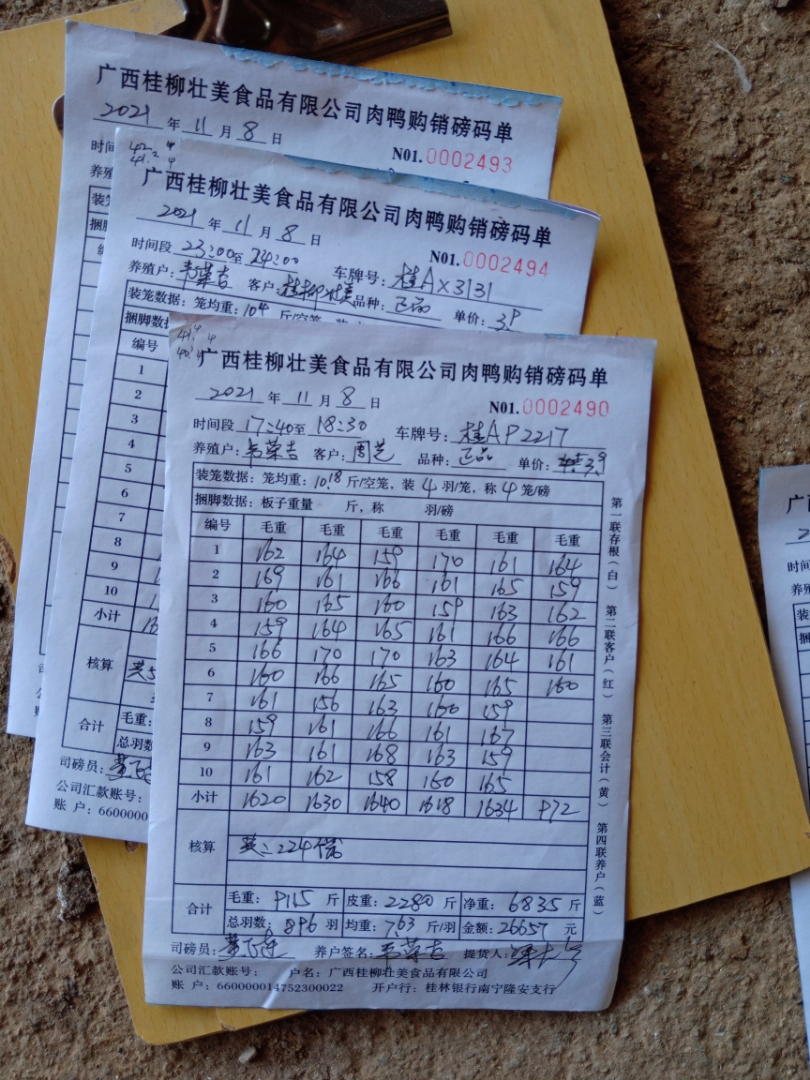 广西桂柳壮美食品有限公司肉鸭购销磅码单
2021年11月8日
N01.0002493
时间
养殖
装笼
捆脚
广西桂柳壮美食品有限公司肉鸭购销磅码单
2021年11月8日
N01.0002494
时间段23:00至24:00 车牌号:桂AX3131
养殖户:韦荣吉 客户:桂柳壮美 品种:正品 单价:3.9
装笼数据:笼均重:10.4斤/空笼
捆脚数据
编号
1
2
3
4
5
6
7
8
9
10
小计
核算 共
合计 毛重:
总羽数
司磅员:
公司汇款账号:
账 户:6600000
广西桂柳壮美食品有限公司肉鸭购销磅码单
2021年11月8日
N01.0002490
时间段17:40至18:30 车牌号:桂AP2217
养殖户:韦荣吉 客户:周芝 品种:正品 单价:3.9
装笼数据:笼均重:10.18斤/空笼,装4羽/笼,称4笼/磅
捆脚数据:板子重量 斤,称 羽/磅
编号 毛重 毛重 毛重 毛重 毛重 毛重
1 162 164 159 170 161 164
2 169 161 166 161 165 159
3 160 165 160 159 163 162
4 159 164 165 161 166 166
5 166 170 170 163 164 161
6 160 166 165 160 165 160
7 161 156 163 160 159
8 159 161 166 161 167
9 163 161 168 163 159
10 161 162 158 160 165
小计 1620 1630 1640 1618 1634 972
核算 共:224
合计 毛重:9115斤 皮重:2280斤 净重:6835斤
总羽数:896羽 均重:7.63斤/羽 金额:26657元
司磅员: 养户签名:韦荣吉 提货人:
公司汇款账号: 户名:广西桂柳壮美食品有限公司
账 户:660000014752300022 开户行:桂林银行南宁隆安支行
第一联存根(白) 第二联客户(红) 第三联会计(黄) 第四联养户(蓝)